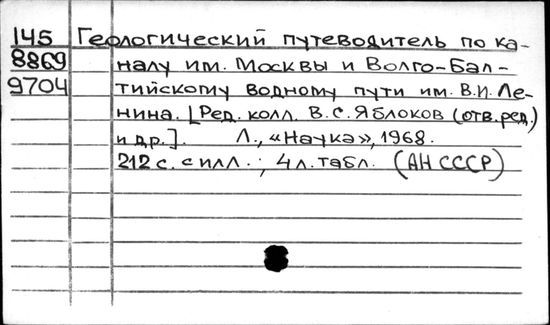 145 Геологический путеводитель по ка-
8869 налу им. Москвы и Волго-Бал-
9704 тийскому водному пути им. В.И. Ле-
нина. [Ред. колл. В.С. Яблоков (отв. ред.)
и др.]. Л., «Наука», 1968.
212 с. с илл.; 4 л. табл. (АН СССР)